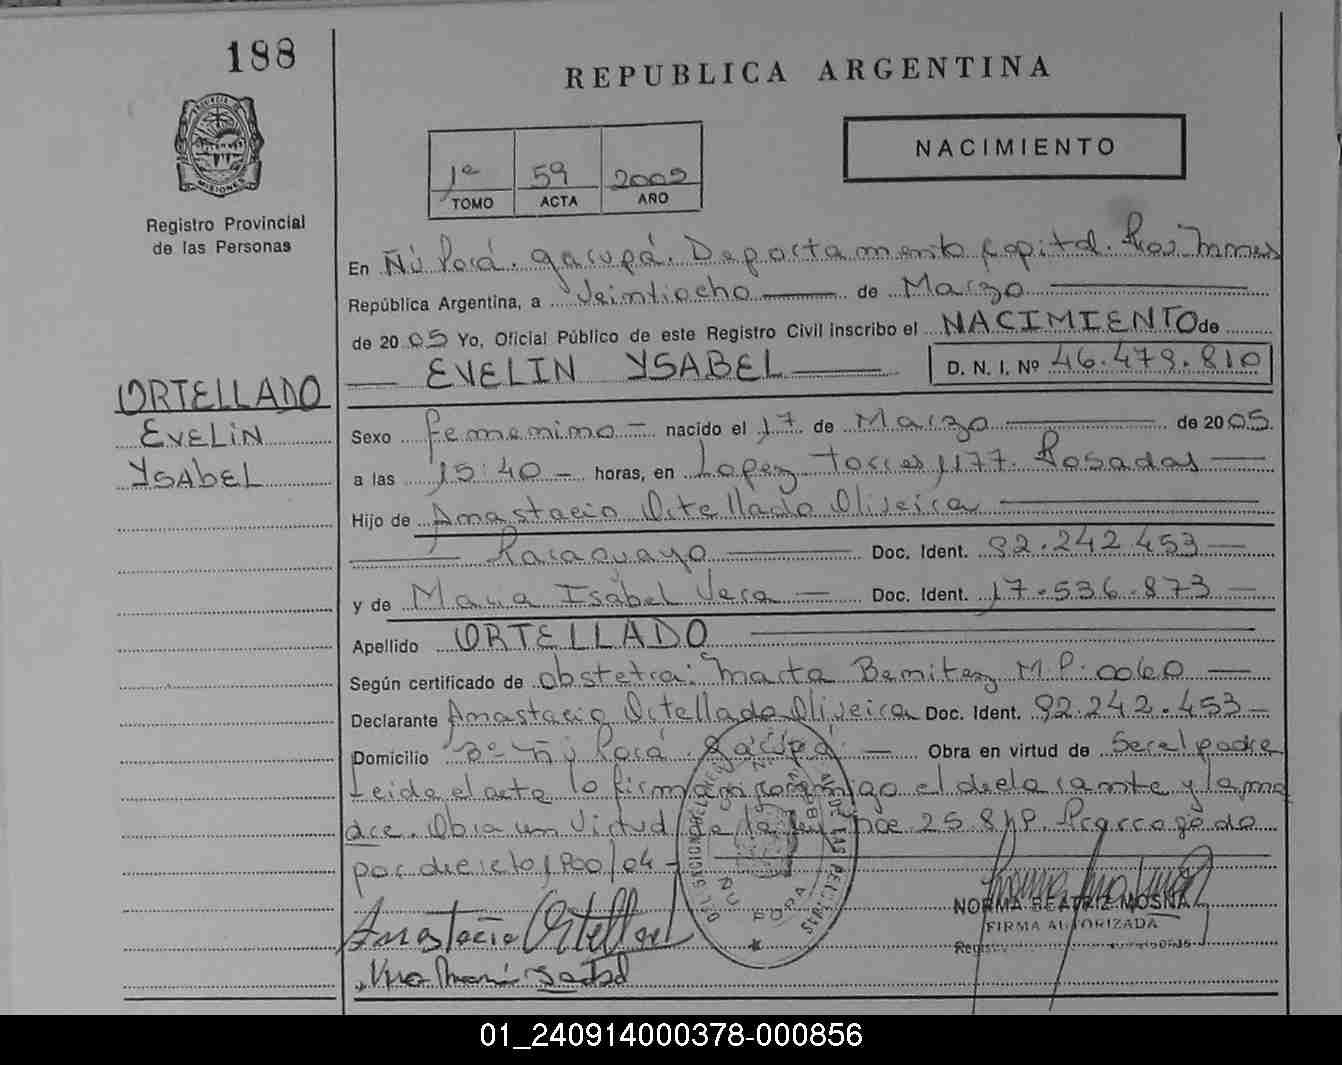 188
REPUBLICA ARGENTINA
PROVINCIA DE
MISIONES
Registro Provincial
de las Personas
NACIMIENTO
1º 59 2005
TOMO ACTA AÑO
En Ñú Porá. Garupá. Departamento Capital. Pos. Misiones
República Argentina, a Veintiocho de Marzo
de 2005 Yo, Oficial Público de este Registro Civil inscribo el NACIMIENTO de
EVELIN YSABEL D. N. I. Nº 46.479.810
ORTELLADO
EVELIN
YSABEL
Sexo femenino nacido el 17 de Marzo de 2005
a las 15:40 horas, en Lopez Torres 1177. Posadas
Hijo de Anastacio Ortellado Oliveira
Paraguayo Doc. Ident. 92.242.453
y de Maria Isabel Vera Doc. Ident. 17.536.873
Apellido ORTELLADO
Según certificado de obstetra: Marta Benitez M.P. 0060
Declarante Anastacio Ortellado Oliveira Doc. Ident. 92.242.453
Domicilio Bº Ñú Porá. Garupá. Obra en virtud de Ser el padre
Leida el acta la firman conmigo el declarante y la ma
dre. Obra en Virtud de la
por decreto 1800/04
Anastacio Ortellado
Vera Maria Isabel
NORMA BEATRIZ MOSNA
FIRMA AUTORIZADA
ÑU PORA
01_240914000378-000856